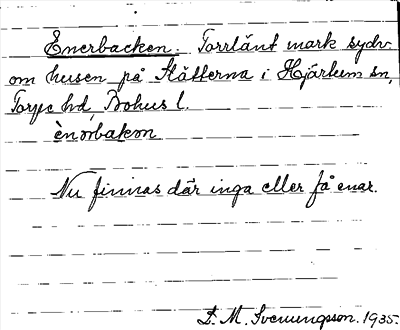 Enerbacken. Torrlänt mark sydv.
om husen på Slätterna i Hjärtum sn,
Torpe hd, Bohus l.
ènərbakən
Nu finnas där inga eller få enar.
D. M. Svenungsson. 1935.